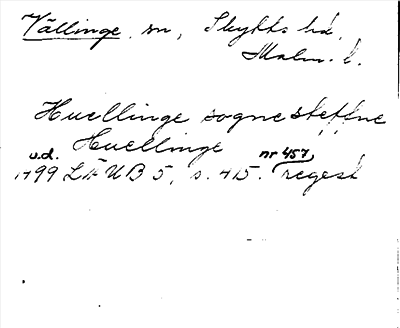 Vällinge sn, Skytts hd,
Malm. l.
Huellinge sognestettne
Huellinge
u.d. nr 457,
1499 LÄUB 5, s. 415. regest